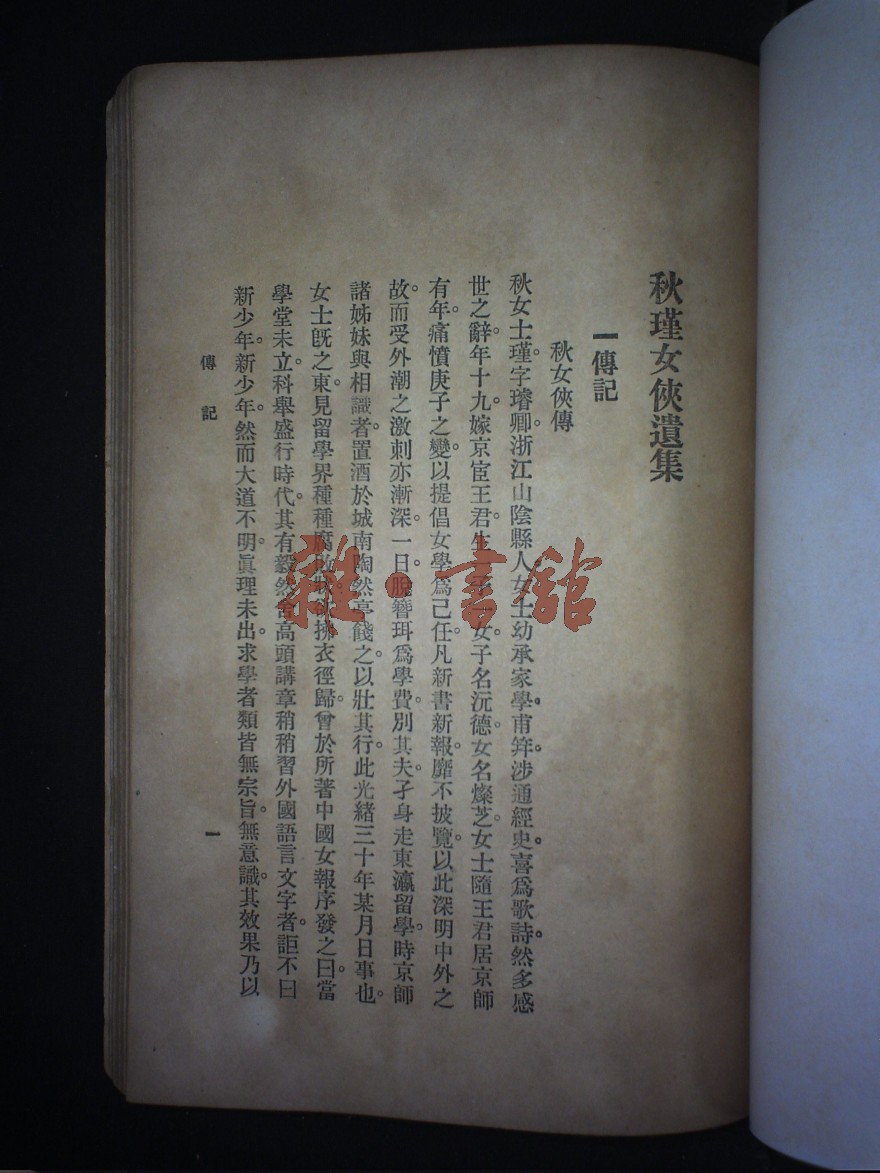 秋瑾女俠遺集
一 傳記
秋女俠傳
秋女士瑾。字璿卿。浙江山陰縣人。女士幼承家學。甫筓。涉通經史。喜爲歌詩。然多感
世之辭。年十九。嫁京宦王君。生一子一女。子名沅德。女名燦芝。女士隨王君居京師
有年。痛憤庚子之變。以提倡女學爲己任。凡新書新報。靡不披覽。以此深明中外之
故。而受外潮之激刺亦漸深。一日。脫簪珥爲學費。別其夫。孑身走東瀛留學。時京師
諸姊妹與相識者。置酒於城南陶然亭餞之。以壯其行。此光緒三十年某月日事也。
女士旣之東。見留學界種種腐敗狀。欲拂衣徑歸。曾於所著中國女報序發之曰。當
學堂未立。科舉盛行時代。其有毅然舍高頭講章。稍稍習外國語言文字者。詎不曰
新少年。新少年。然而大道不明。眞理未出。求學者類皆無宗旨。無意識。其效果乃以
傳記
一
雜·書館